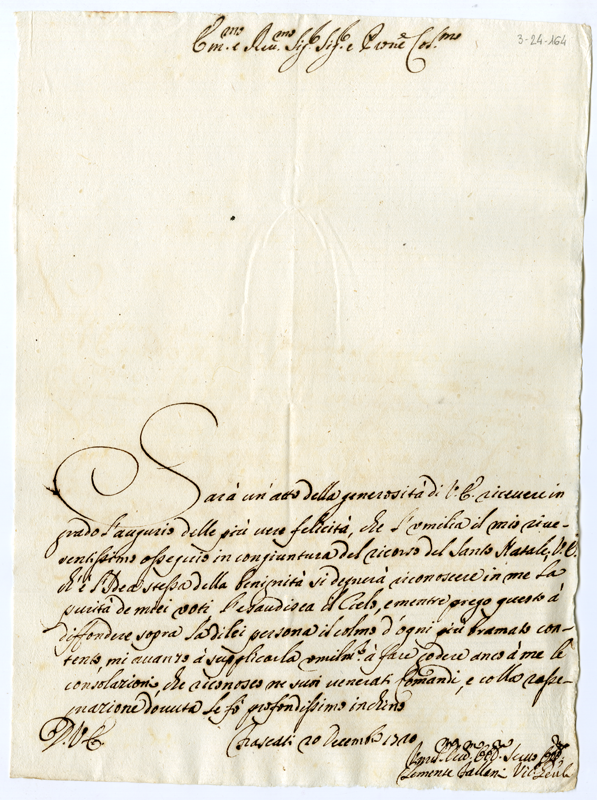 Em.mo e Reu.mo Sig.r Sig.r e Prone Col.mo
3-24-164
Sarà un atto della generosità di V. E. riceuere in
grado l'augurio delle più uere felicità, che l'umilia il mio riue-
rentissimo ossequio in congiuntura del ricorso del Santo Natale, V. E.
ch'è l'Idea stessa della benignità si degnerà riconoscere in me la
purità de miei uoti l'esaudisca il Cielo, e mentre prego questo à
diffondere sopra la di lei persona il colmo d'ogni più bramato con-
tento, mi auanzo à supplicarla umilm.te à fare godere anco à me le
consolazioni, che riconosco ne suoi uenerati Comandi, e colla rasse-
gnazione douuta le fò profondissimo inchino
D. V. E.
Frascati 20 Decembr.
Um.mo
Clemente